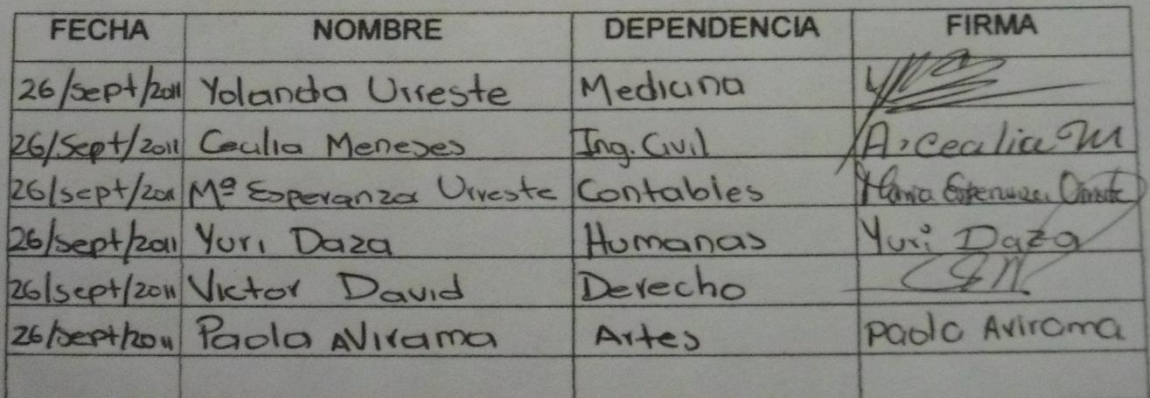 FECHA NOMBRE DEPENDENCIA FIRMA
26/sept/2011 Yolanda Urreste Medicina
26/Sept/2011 Cecilia Meneses Ing. Civil A. Cecilia M
26/sept/2011 Mª Esperanza Urreste Contables Maria Esperanza Urreste
26/sept/2011 Yuri Daza Humanas Yuri Daza
26/sept/2011 Victor David Derecho
26/sept/2011 Paola Avirama Artes Paola Avirama